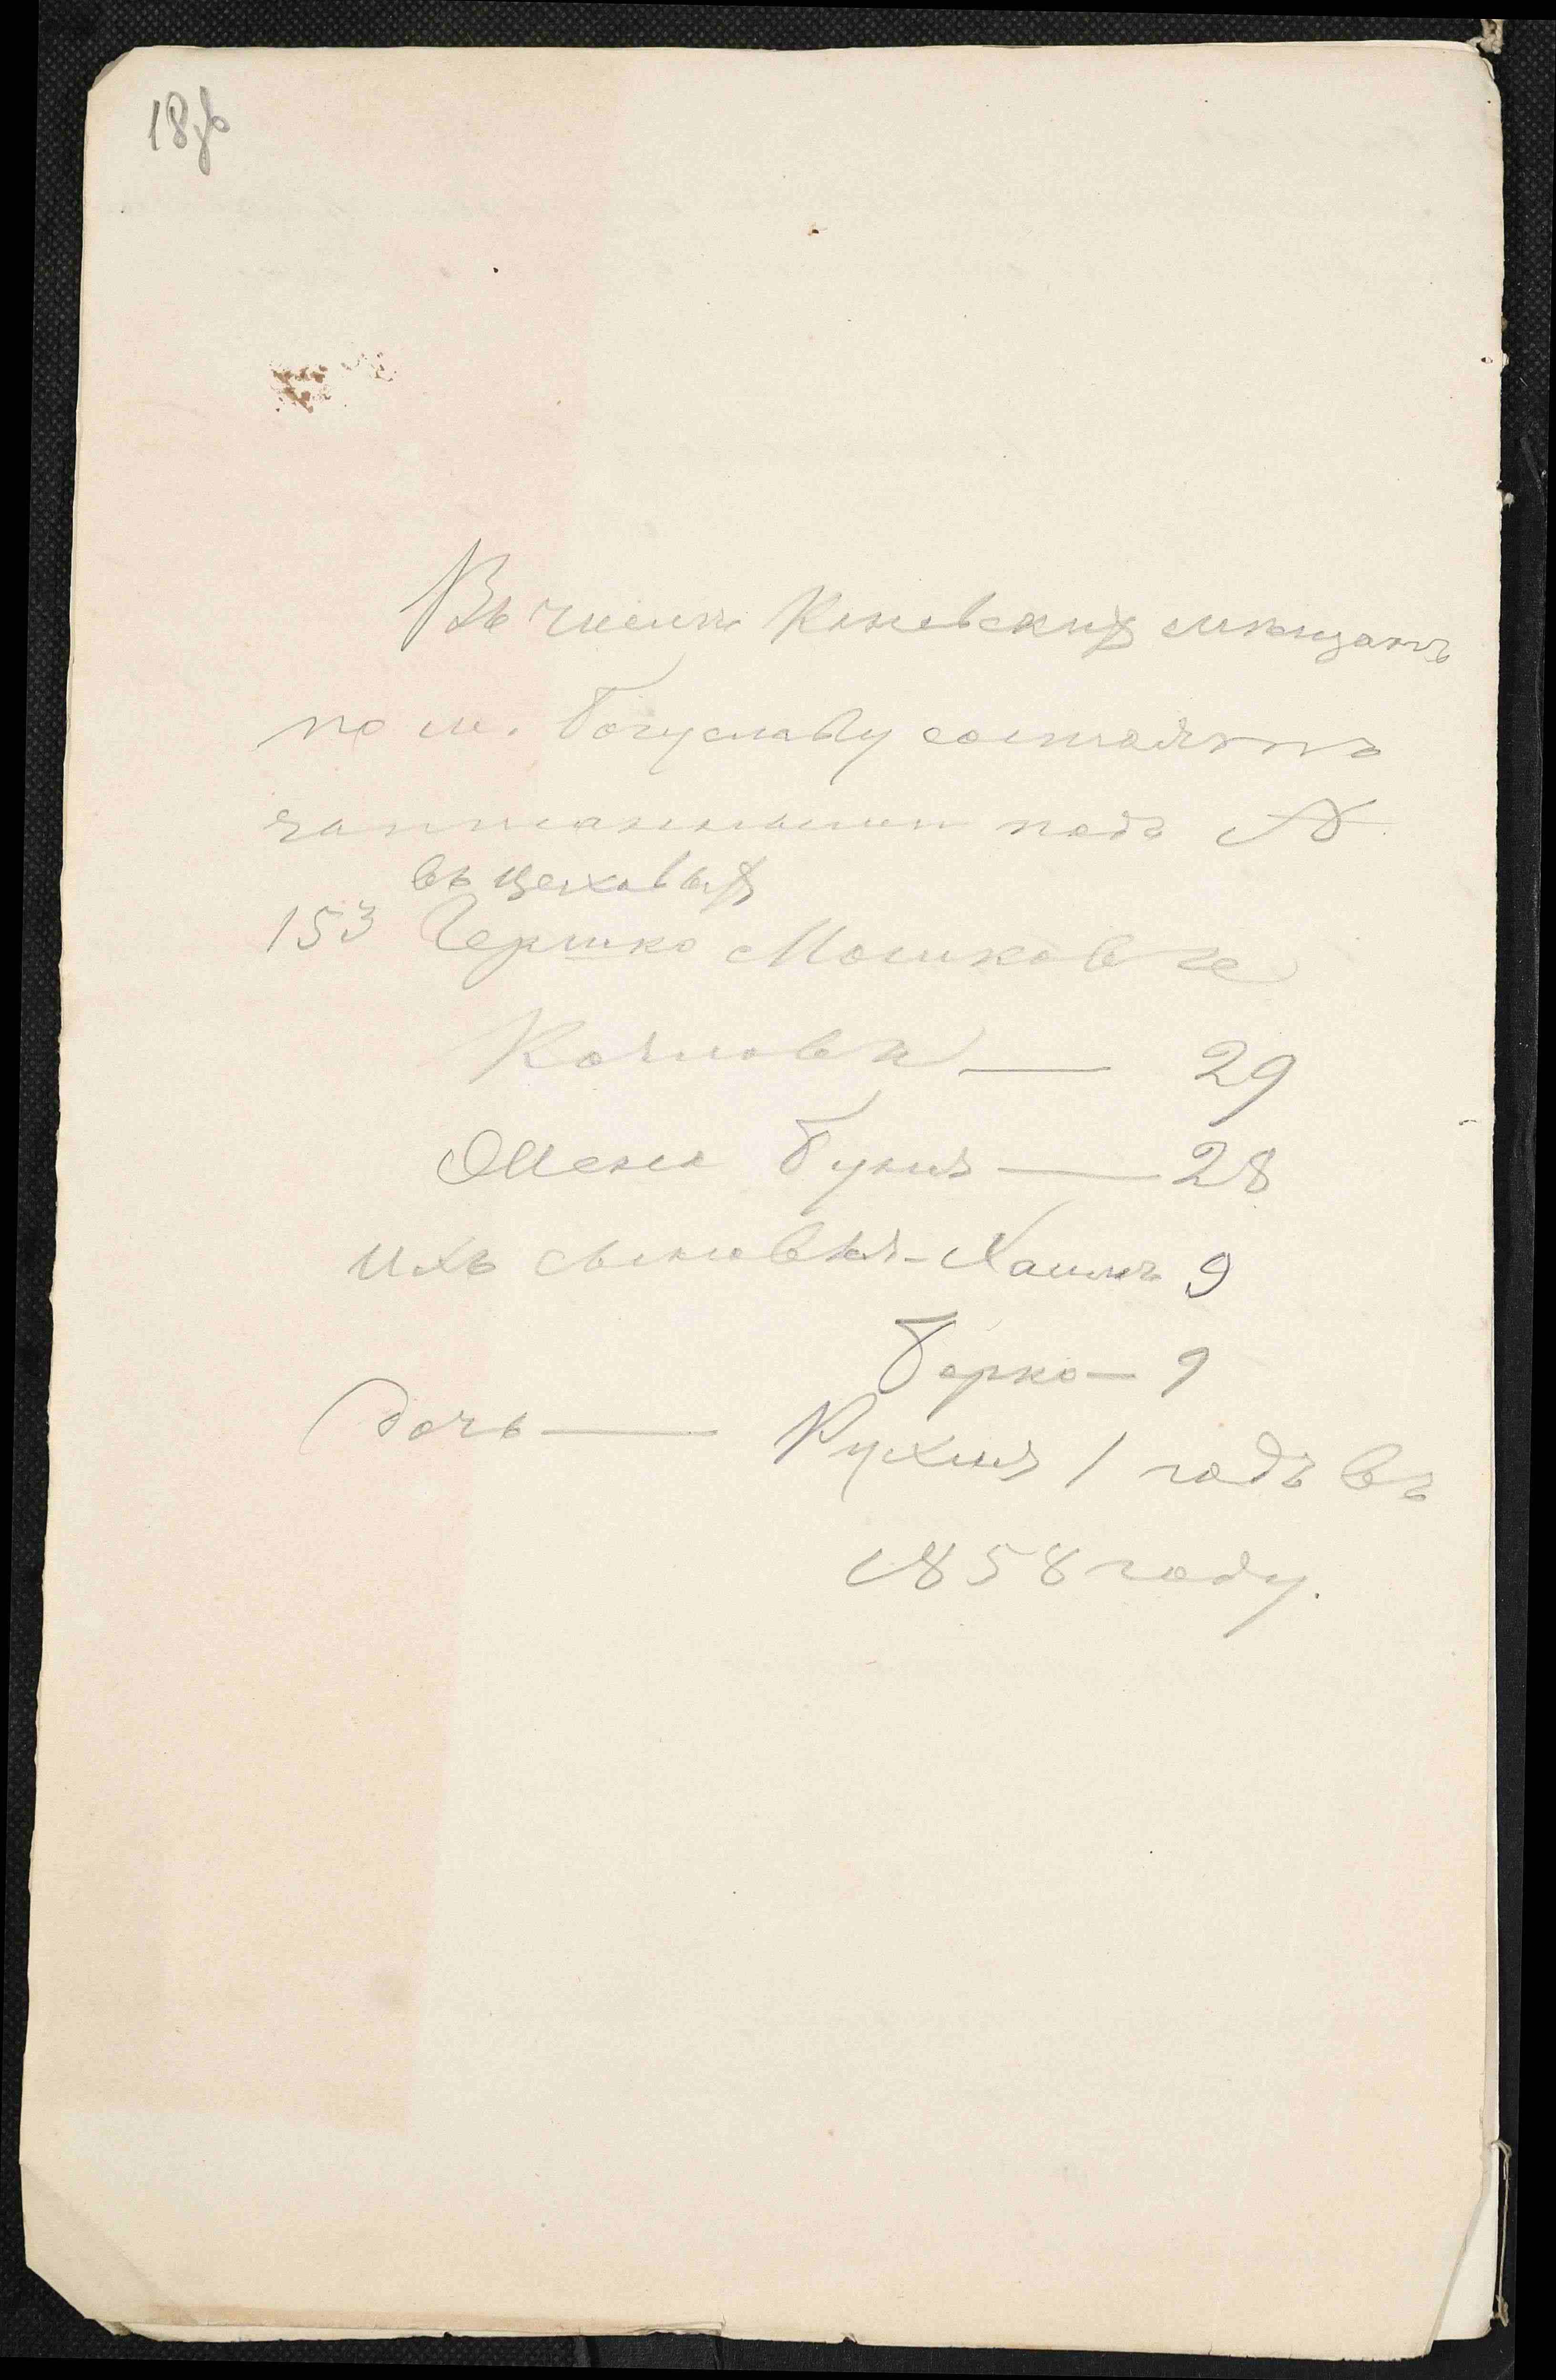 18об
Въ числѣ Каневскихъ мѣщанъ
по м. Богуславу состоятъ
записанными подъ №
въ цеховыхъ
153 Гершко Мошковъ
29
Жена Буня — 28
ихъ сыновья - Хаимъ 9
Берко — 9
дочь — Рухля 1 годъ въ
1858 году.